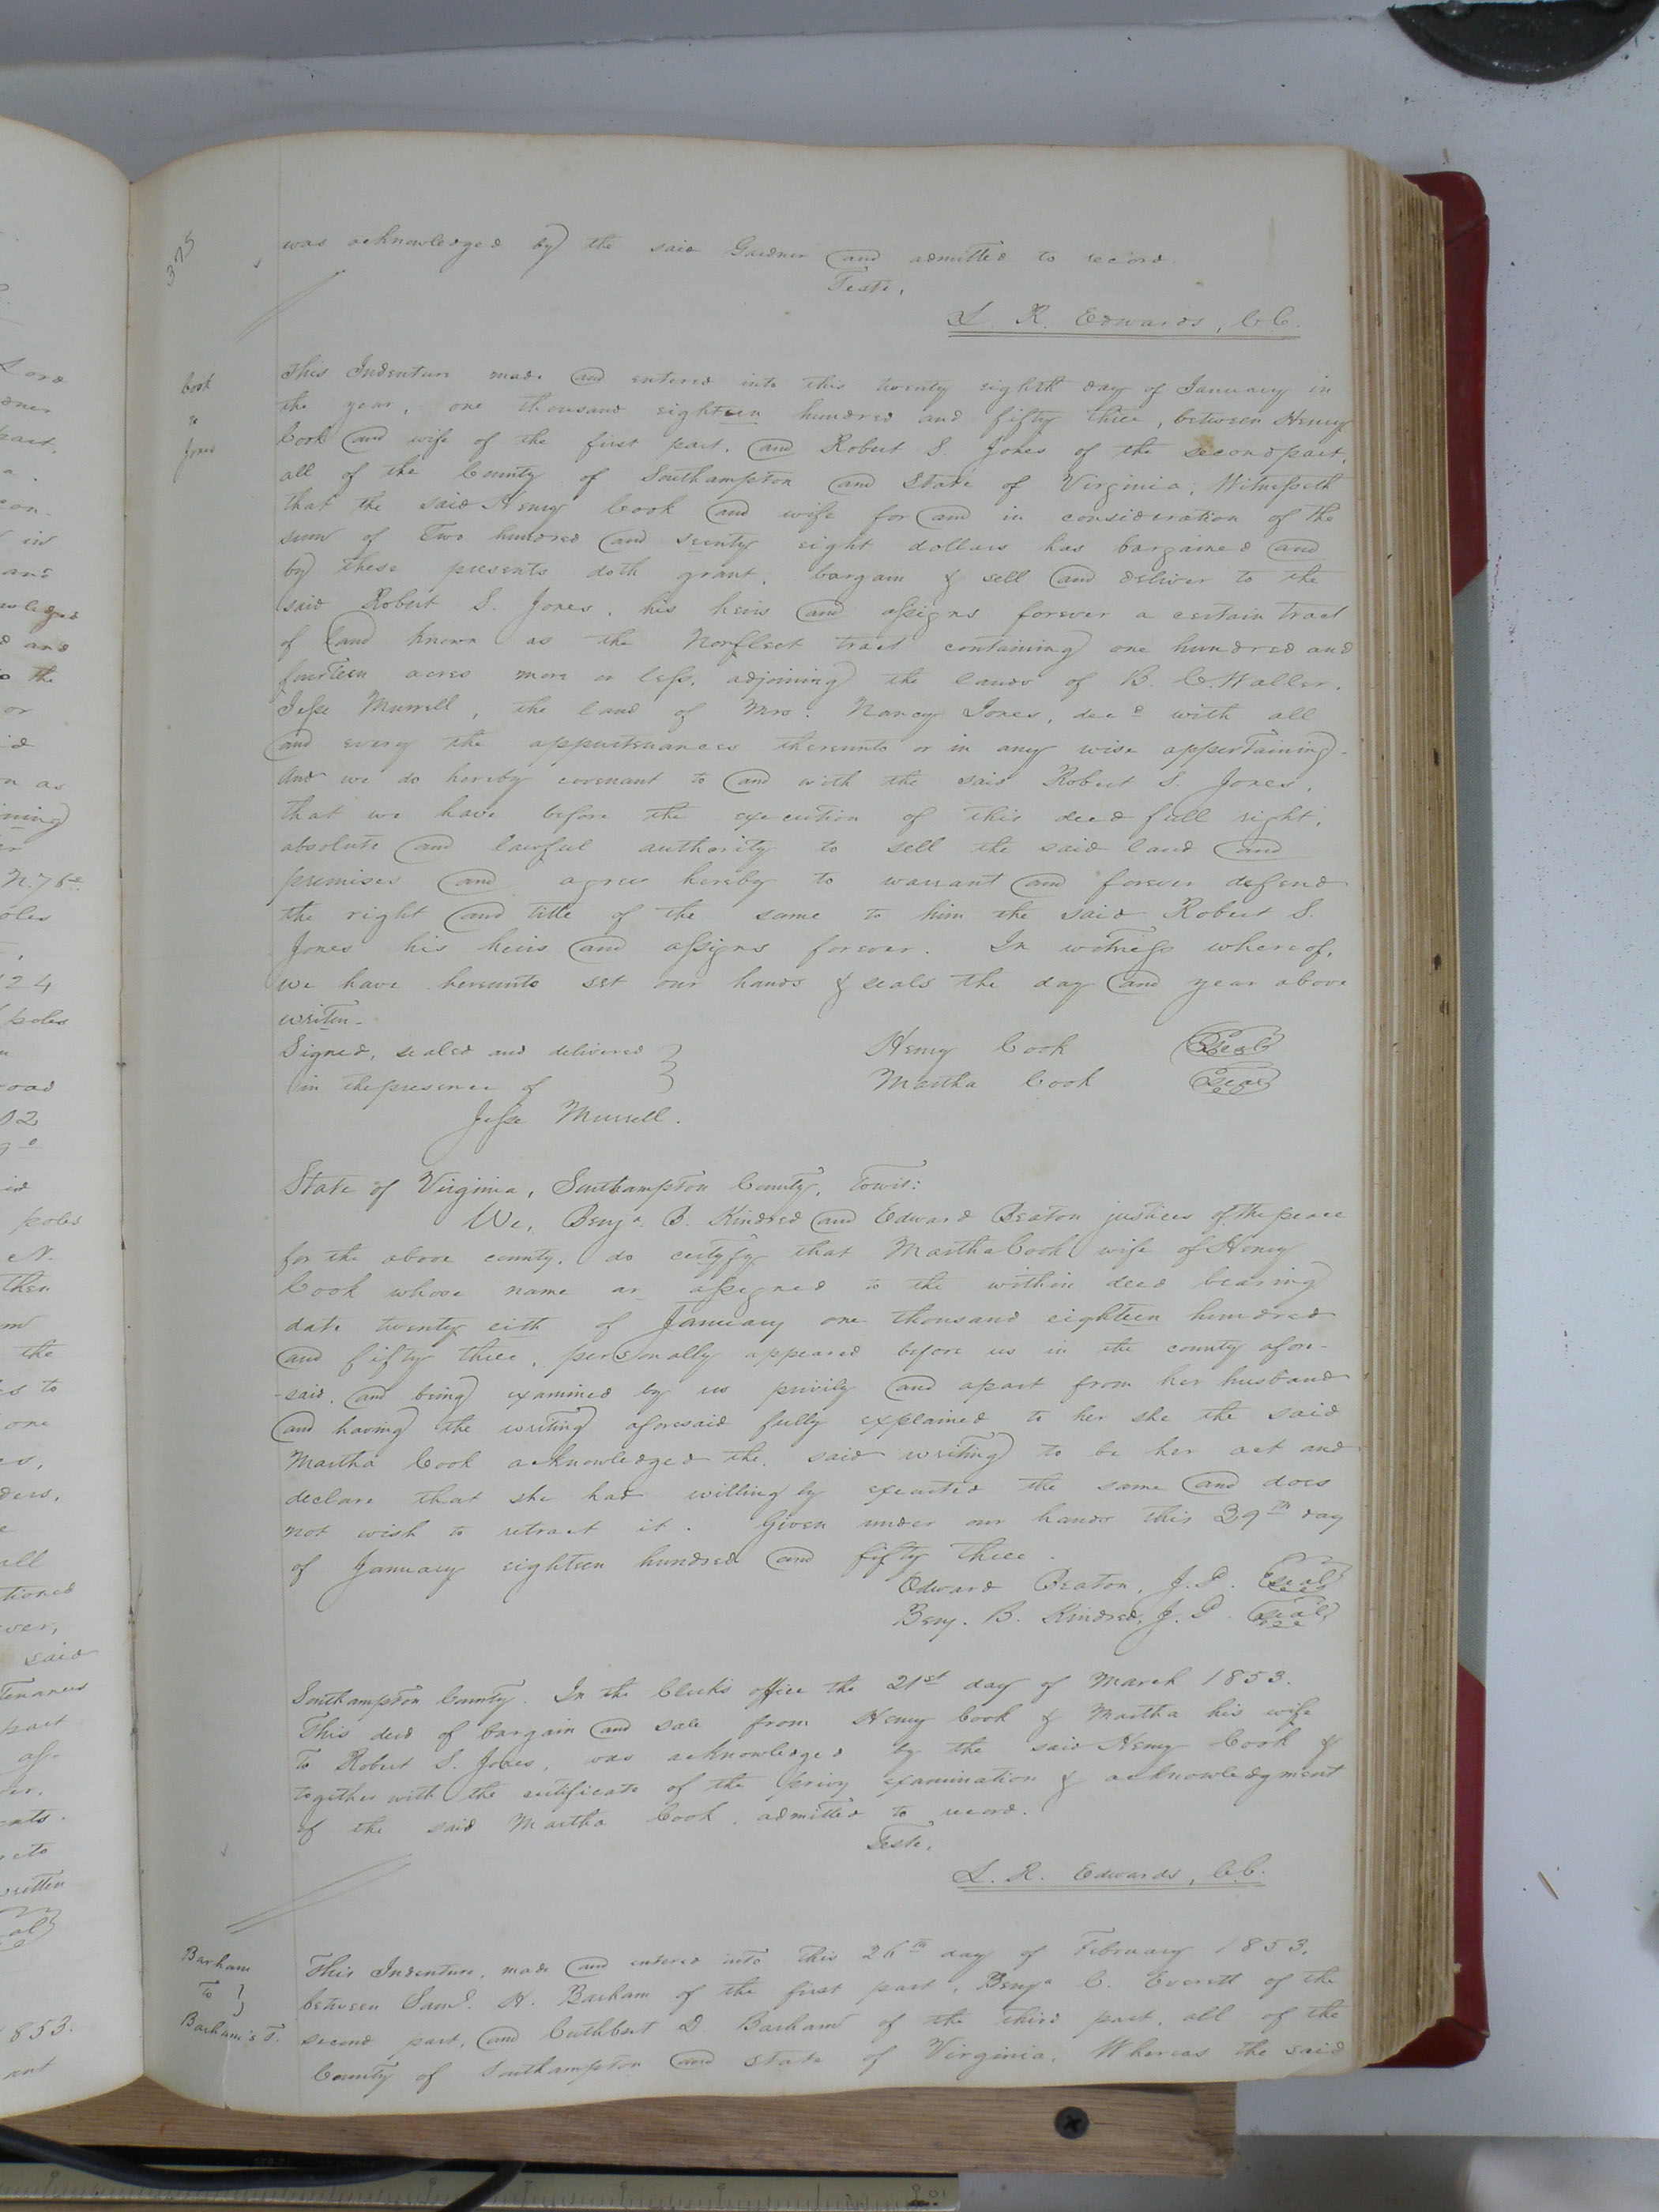 375
was acknowledged by the said Gardner and admitted to record.
Teste,
L. R. Edwards, C.C.
Cook
to
Jones
This Indenture made and entered into this twenty eighth day of January in
the year, one thousand eighteen hundred and fifty three, between Henry
Cook and wife of the first part, and Robert S. Jones of the second part,
all of the County of Southampton and State of Virginia; Witnesseth
that the said Henry Cook and wife for and in consideration of the
sum of Two hundred and seventy eight dollars has bargained and
by these presents doth grant, bargain & sell and deliver to the
said Robert S. Jones, his heirs and assigns forever a certain tract
of land known as the Norfleet tract containing one hundred and
fourteen acres more or less, adjoining the lands of B. C. Waller,
Jesse Murrell, the land of Mrs. Nancy Jones, decd with all
and every the appurtenances thereunto or in any wise appertaining.
And we do hereby covenant to and with the said Robert S. Jones,
that we have before the execution of this deed full right,
absolute and lawful authority to sell the said land and
premises and agree hereby to warrant and forever defend
the right and title of the same to him the said Robert S.
Jones his heirs and assigns forever. In witness whereof,
we have hereunto set our hands & seals the day and year above
writen.
Signed, sealed and delivered } Henry Cook Seal
in the presence of } Martha Cook Seal
Jesse Murrell.
State of Virginia, Southampton County, Towit:
We, Benja. B. Kindred and Edward Beaton justices of the peace
for the above county, do certyfy that Martha Cook wife of Henry
Cook whose name as assigned to the within deed bearing
date twenty eith of January one thousand eighteen hundred
and fifty three, personally appeared before us in the county afore-
-said, and being examined by us privily and apart from her husband
and having the writing aforesaid fully explained to her she the said
Martha Cook acknowledged the said writing to be her act and
declare that she had willingly executed the same and does
not wish to retract it. Given under our hands this 39th day
of January eighteen hundred and fifty three.
Edward Beaton, J.P. Seal
Benj. B. Kindred, J.P. Seal
Southampton County. In the Clerk's office the 21st day of March 1853.
This deed of bargain and sale from Henry Cook & Martha his wife
To Robert S. Jones, was acknowledged by the said Henry Cook &
together with the certificate of the privy examination & acknowledgment
of the said Martha Cook, admitted to record.
Teste,
L. R. Edwards, C.C.
Barham
To }
Barham's T.
This Indenture, made and entered into this 26th day of February 1853,
between Saml. H. Barham of the first part, Benja C. Everett of the
second part, and Cuthbert D. Barham of the third part, all of the
County of Southampton and state of Virginia. Whereas the said